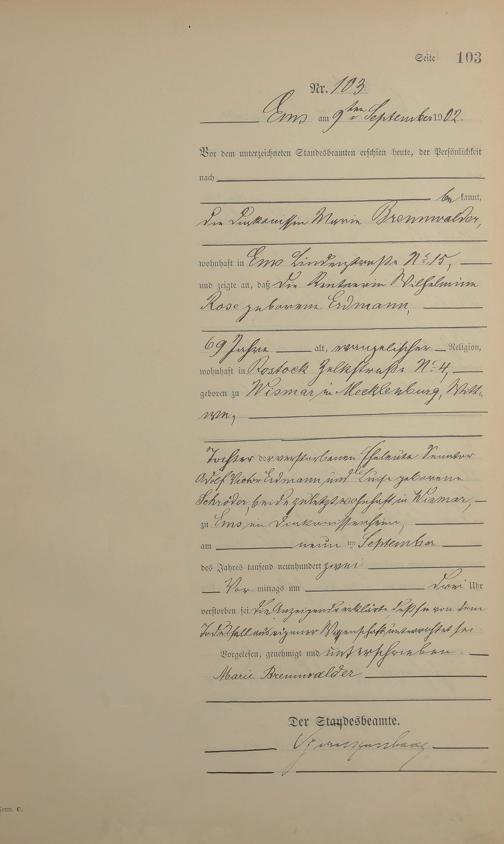 Seite 103
Nr. 103
Ems am 9ten September 1902.
Vor dem unterzeichneten Standesbeamten erschien heute, der Persönlichkeit
nach
be kannt,
die Diakonissin Marie Brennwalder,
wohnhaft in Ems Lindenstraße No 15,
und zeigte an, daß die Rentnerin Wilhelmine
Rose geborene Erdmann,
69 Jahre alt, evangelischer Religion,
wohnhaft in Rostock No 4,
geboren zu Wismar in Mecklenburg, Witt-
we,
Tochter der verstorbenen Eheleute Senator
Adolf Victor Erdmann und Luise geborene
Schröder, beide zuletzt wohnhaft in Wismar,
zu Ems im Diakonissenheim,
am neun ten September
des Jahres tausend neunhundert zwei
Vor mittags um drei Uhr
verstorben sei. Die Anzeigende erklärte daß sie von dem
Todesfall aus eigener Wissenschaft unterrichtet sei
Vorgelesen, genehmigt und unterschrieben
Marie Brennwalder
Der Standesbeamte.